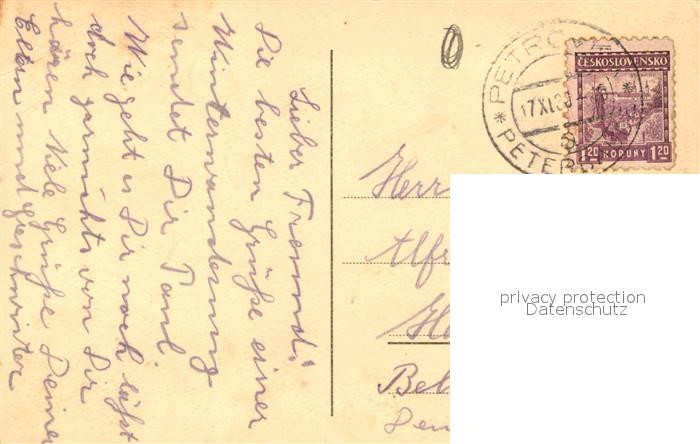 Lieber Freund!
Die besten Grüße einer
Winterwanderung
sendet Dir Paul.
Wie geht es Dir noch läßt
doch garnichts von Dir
hören Viele Grüße Deinen
Eltern und Geschwister
Herr
Alfr
Bel
PETRO
17.XI.30
PETER
ČESKOSLOVENSKO
1.20 KORUNY 1.20
privacy protection
Datenschutz